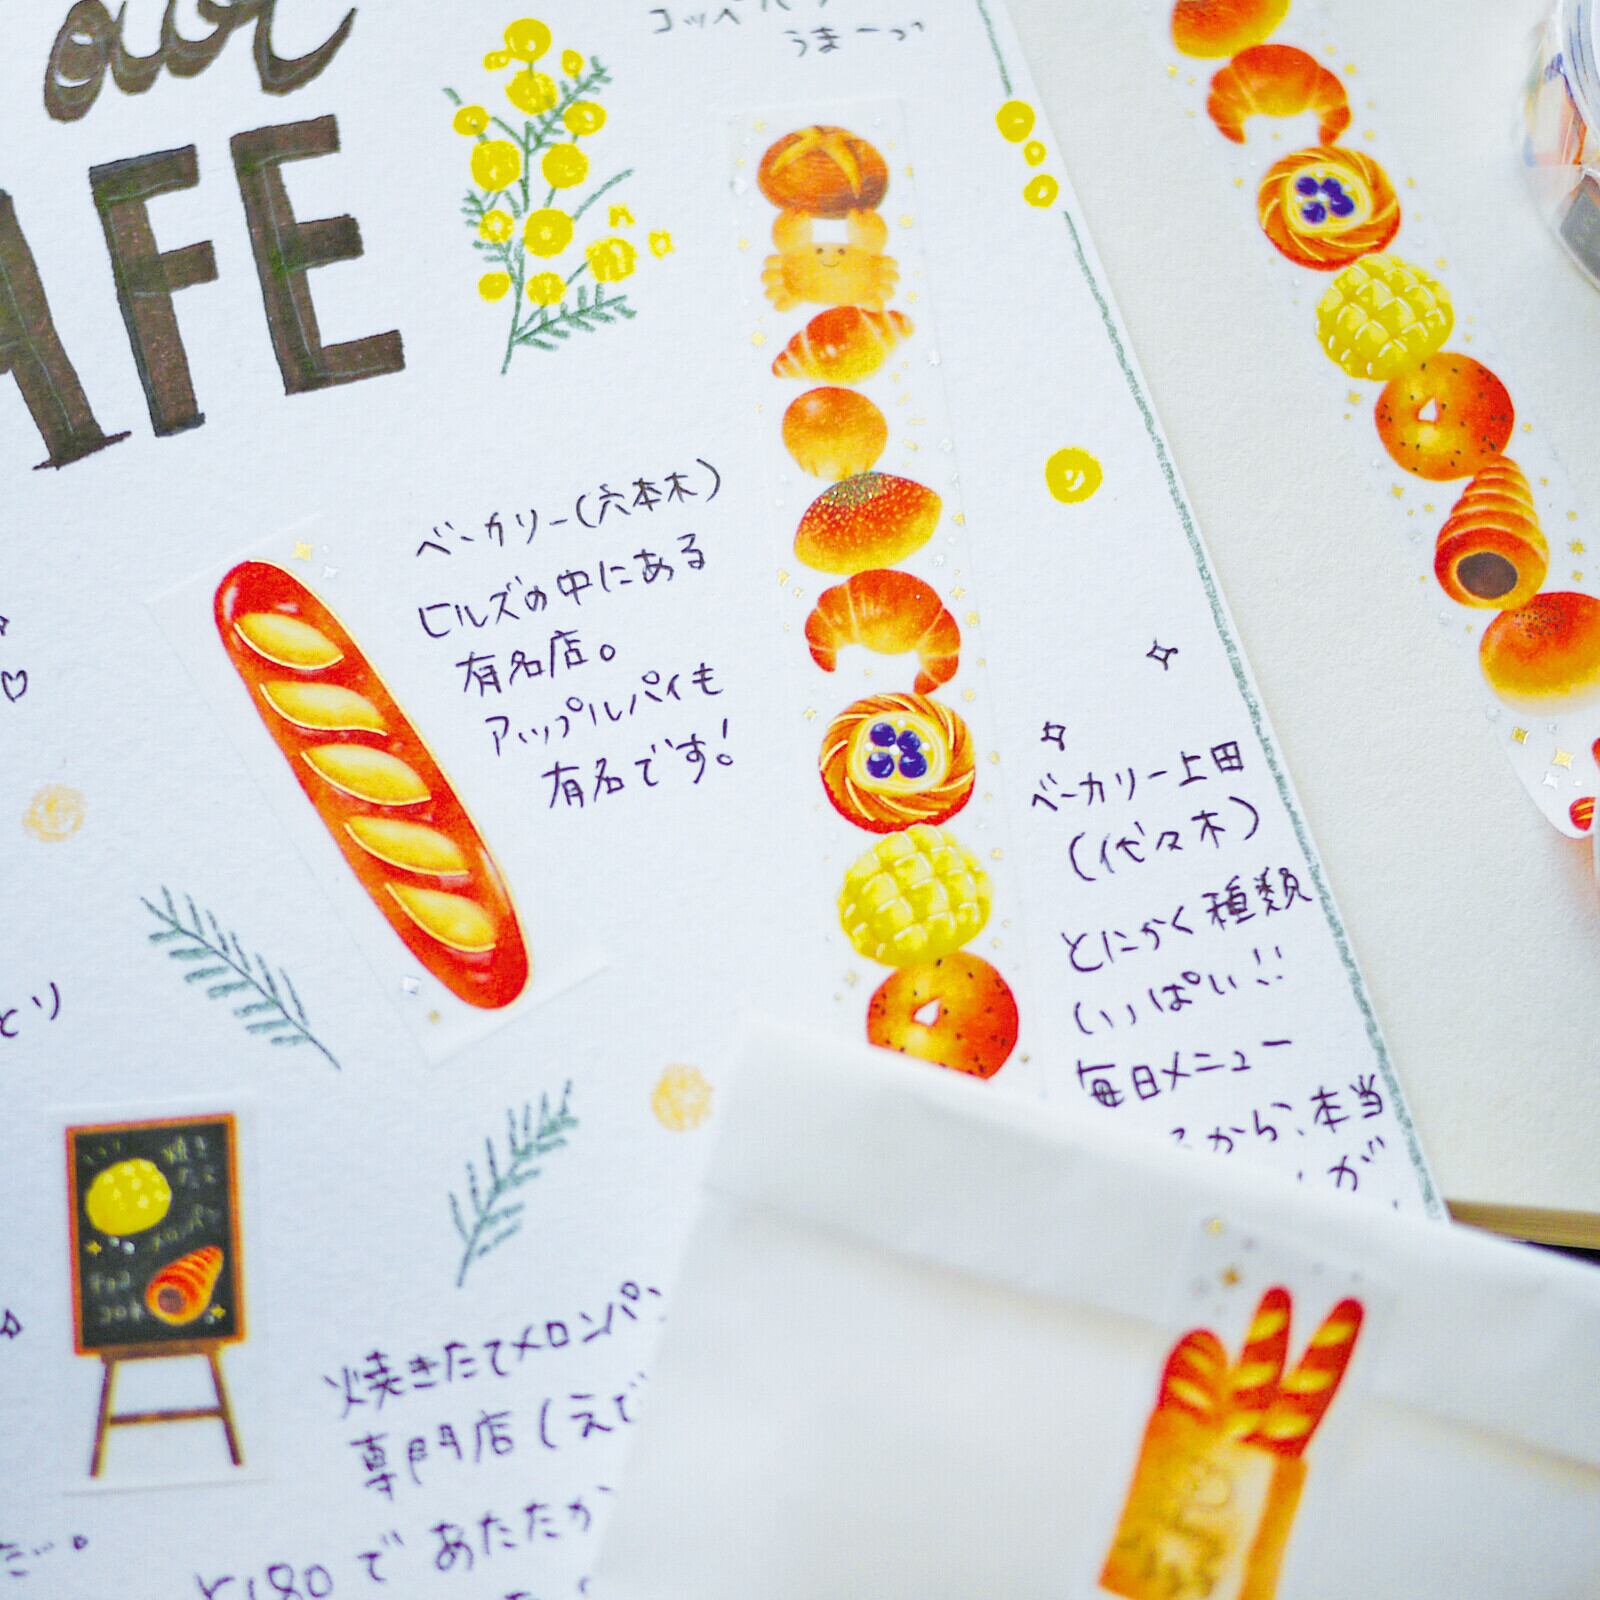 うまーっ
AFE
ベーカリー(六本木)
ヒルズの中にある
有名店。
アップルパイも
有名です!
ベーカリー上田
(代々木)
とにかく種類
いっぱい!!
毎日メニュー
から、本当
が
焼きたて
メロンパン
チョコ
コロネ
焼きたてメロンパン
専門店(えび
¥180であたたか